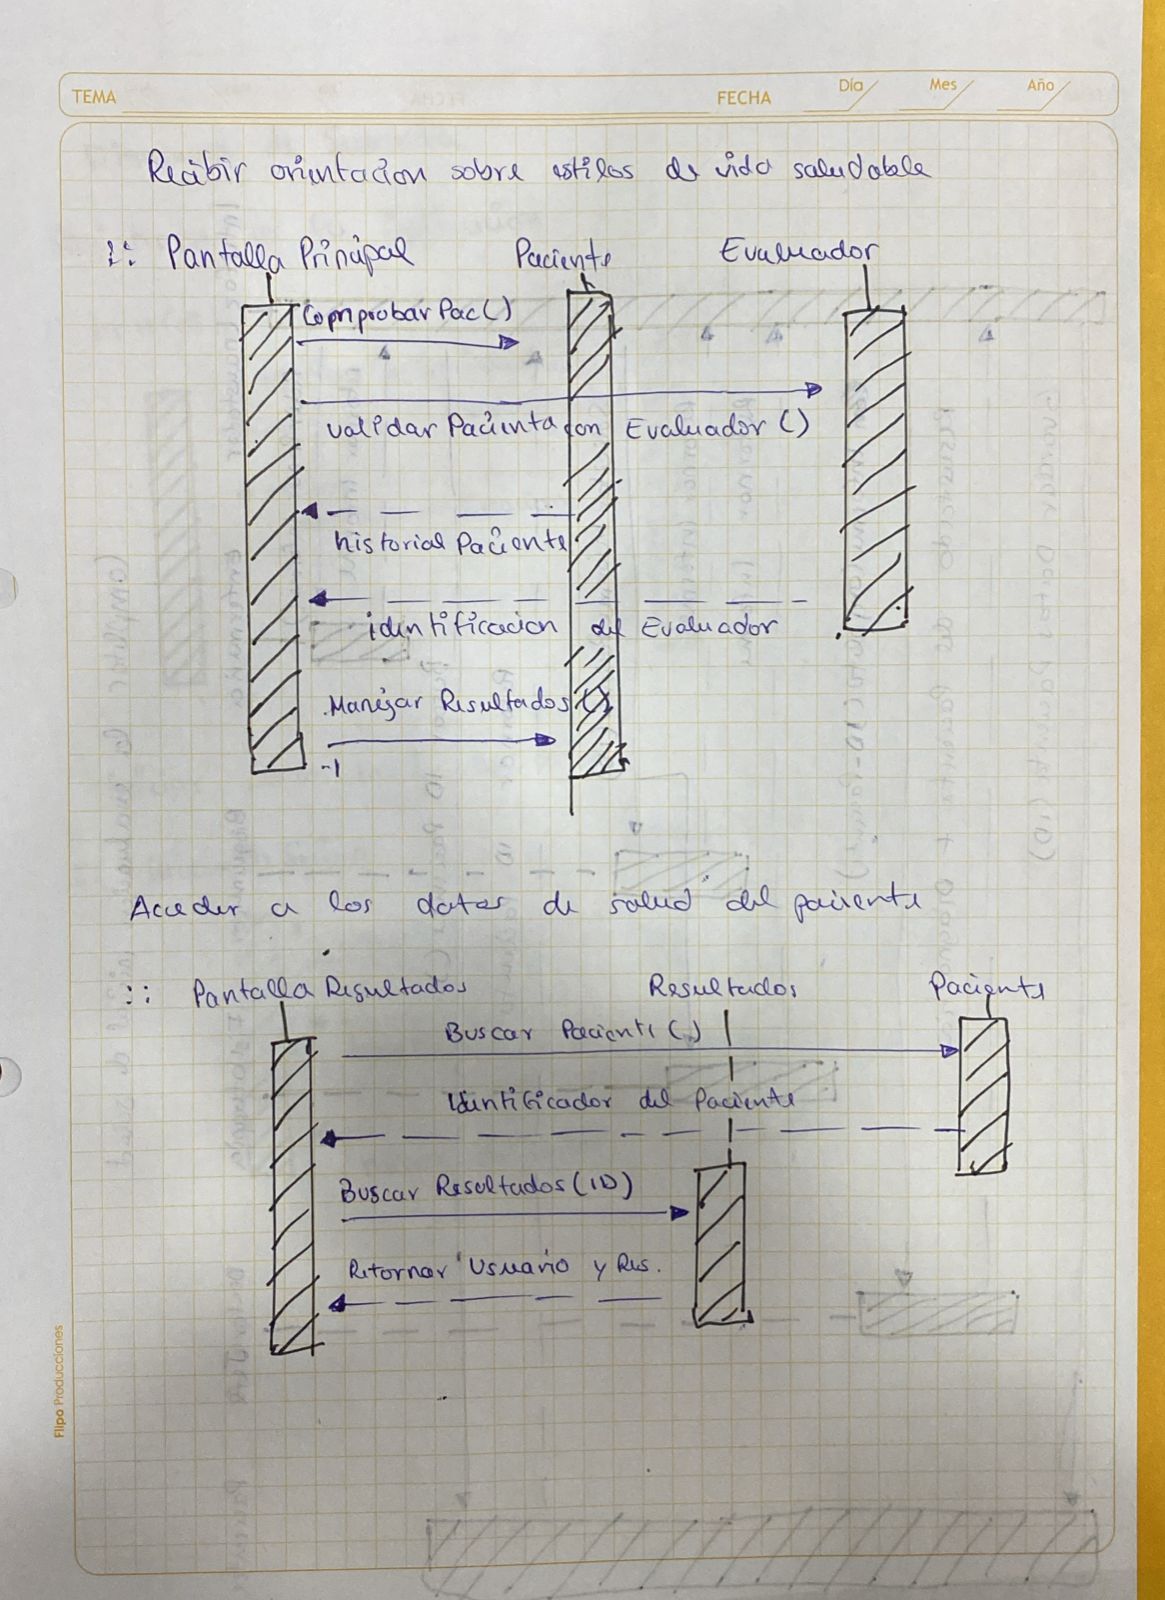 TEMA FECHA Día Mes Año
Recibir orientacion sobre estilos de vida saludable
1: Pantalla Principal Paciente Evaluador
Comprobar Pac ( )
validar Paciente con Evaluador ( )
historial Paciente
identificacion del Evaluador
Manejar Resultados ( )
-1
Acceder a los datos de salud del paciente
:: Pantalla Resultados Resultados Paciente
Buscar Paciente ( )
Identificador del Paciente
Buscar Resultados (ID)
Retornar Usuario y Res.
Flipo Producciones